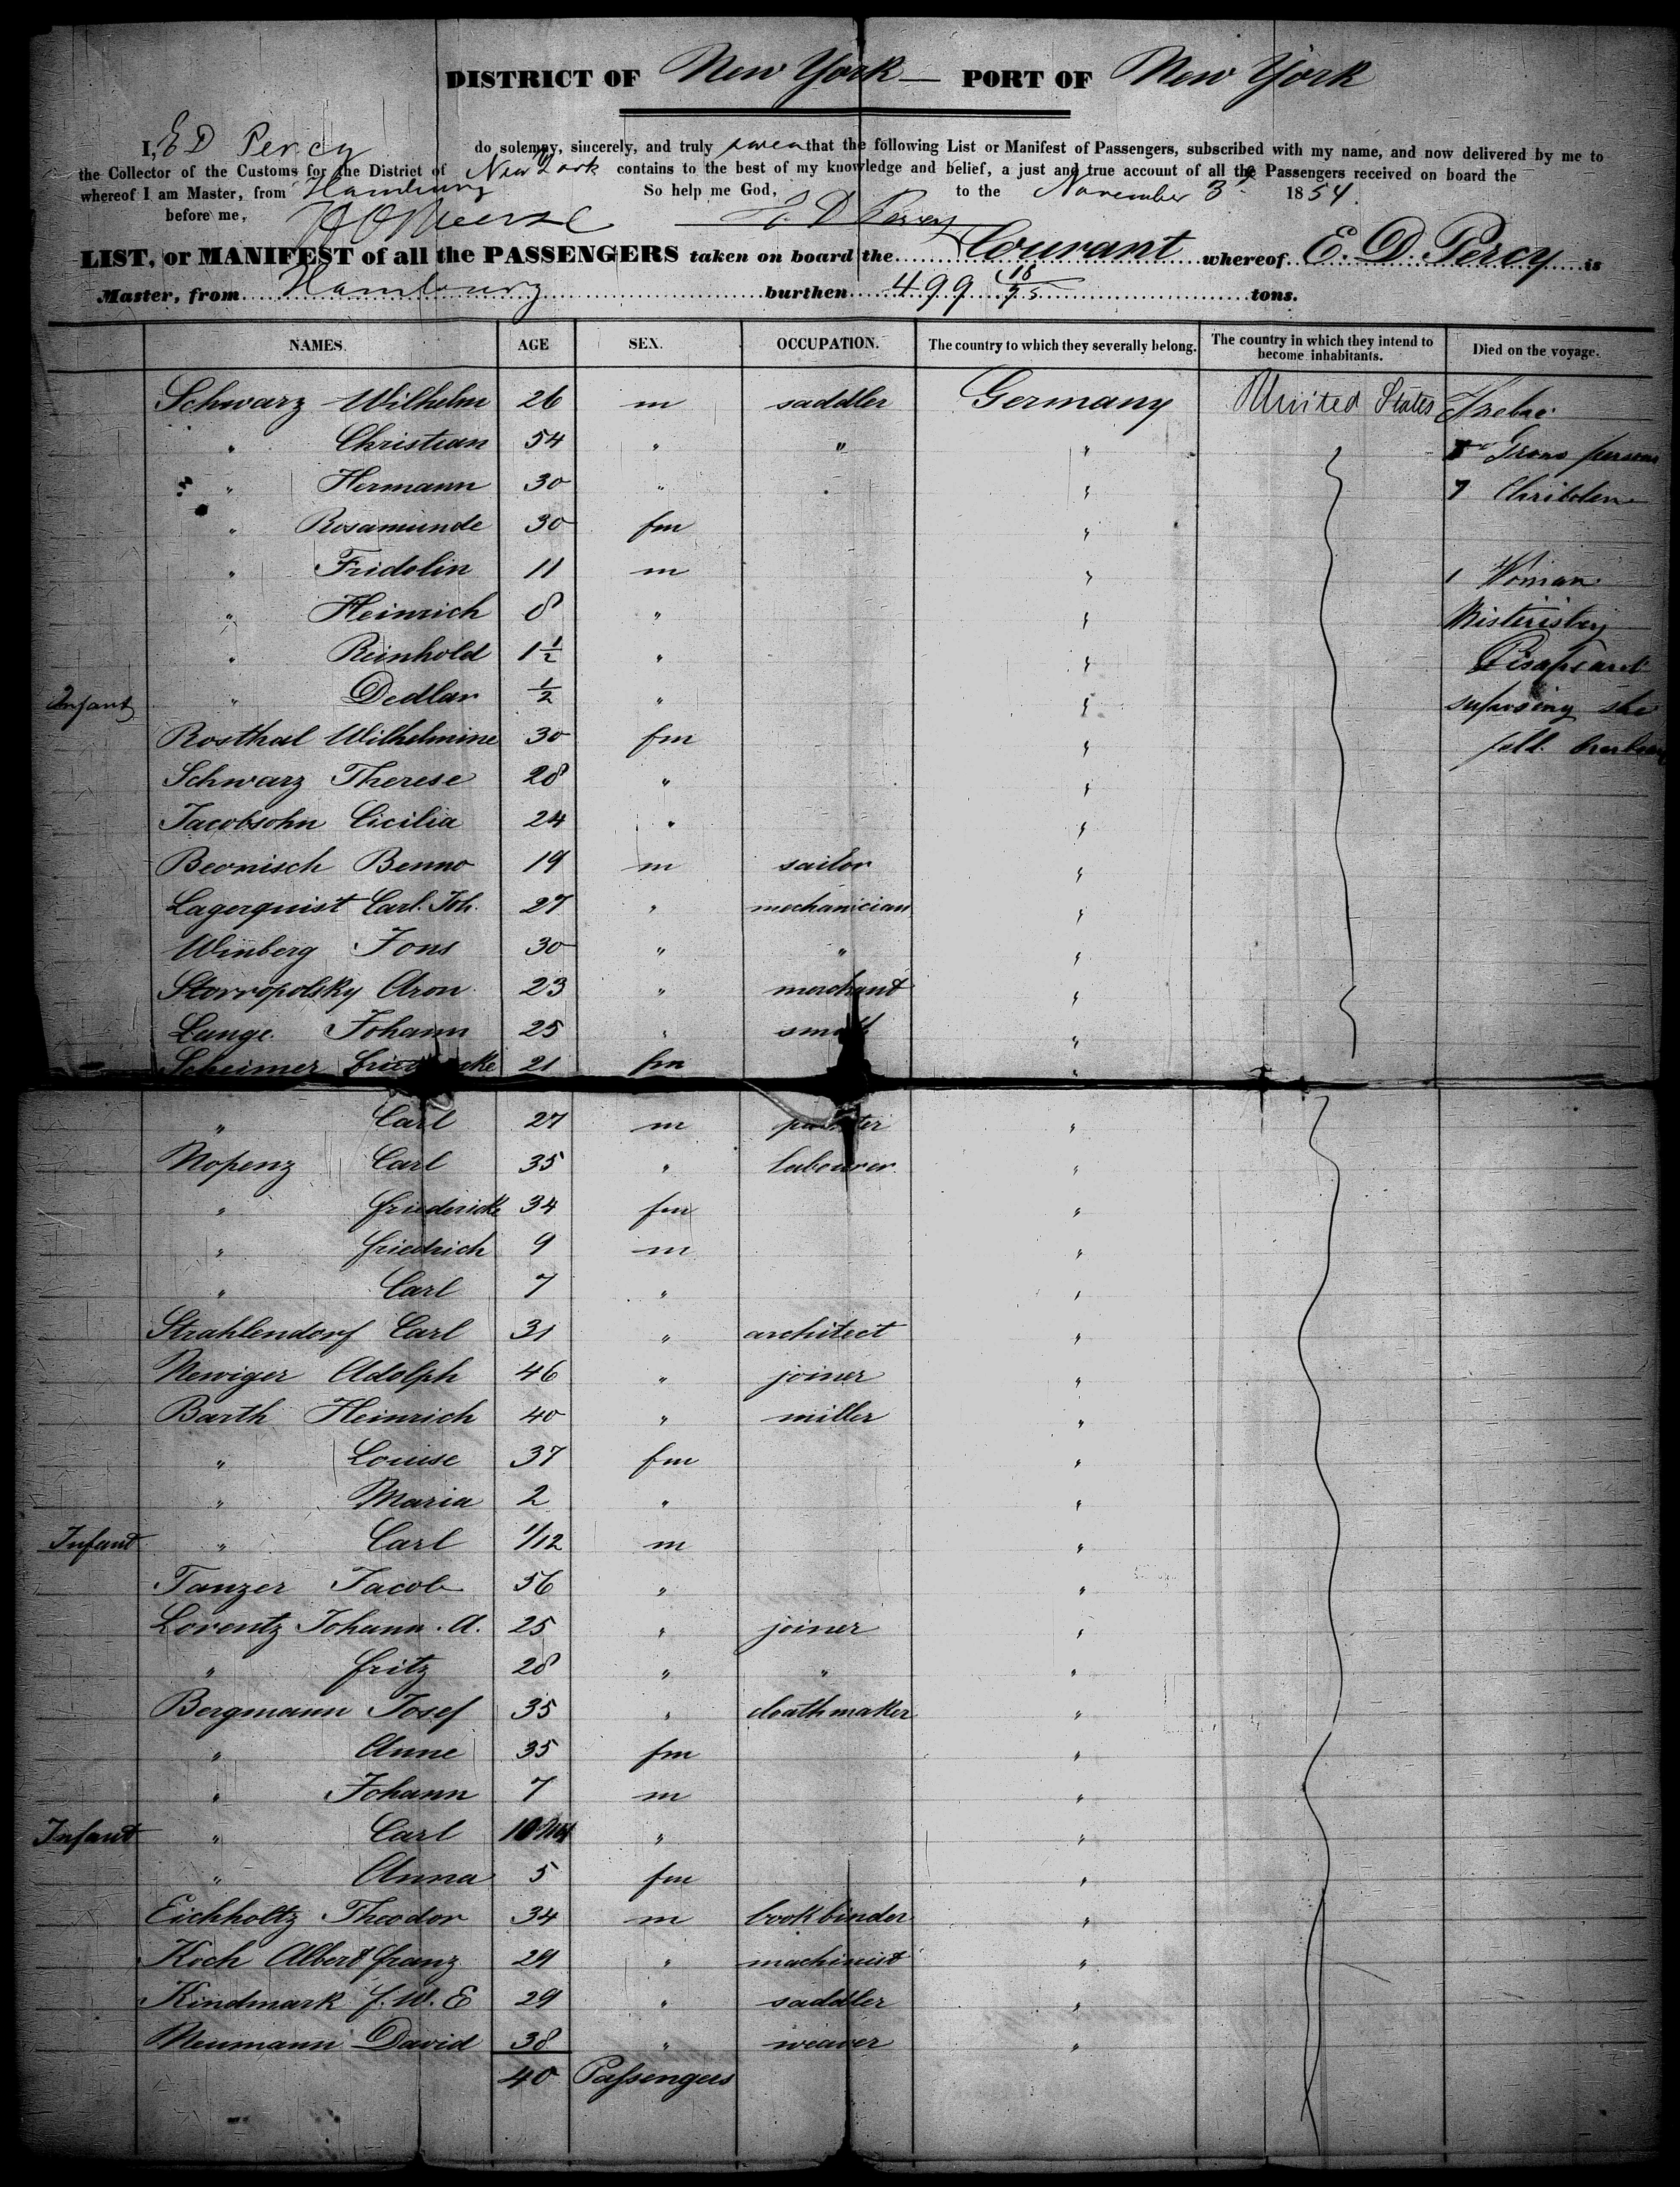 DISTRICT OF New York — PORT OF New York
I, E D Percy do solemny, sincerely, and truly swear that the following List or Manifest of Passengers, subscribed with my name, and now delivered by me to
the Collector of the Customs for the District of New York contains to the best of my knowledge and belief, a just and true account of all the Passengers received on board the
whereof I am Master, from Hamburg So help me God, to the November 3 1854.
before me, E D Percy
LIST, or MANIFEST of all the PASSENGERS taken on board the Courant whereof E. D. Percy is
Master, from Hambourg burthen 499 18/95 tons.
NAMES. AGE SEX. OCCUPATION. The country to which they severally belong. The country in which they intend to become inhabitants. Died on the voyage.
Schwarz Wilhelm 26 m saddler Germany United States
" Christian 54 " " " Grono person
" Hermann 30 " " " 7 Chribdern
" Rosamunde 30 fm "
" Fridolin 11 m " 1 Woman
" Heinrich 8 " " Misterisby
" Reinhold 1 1/2 " " Disapeard
Infant " Dedlar 1/2 " " suposing she
Rosthal Wilhelmine 30 fm " fell
Schwarz Therese 28 " "
Jacobsohn Cicilia 24 " "
Beonisch Benno 19 m sailor "
Lagerquist Carl. Joh. 27 " mechanician "
Winberg Jons 30 " " "
Storropolsky Aron 23 " merchant "
Lange. Johann 25 " smith "
Scheimer 21 fm "
" Carl 27 m "
Nopenz Carl 35 " labourer "
" Friedericke 34 fm "
" Friedrich 9 m "
" Carl 7 " "
Strahlendorf Carl 31 " architect "
Newiger Adolph 46 " joiner "
Barth Heinrich 40 " miller "
" Louise 37 fm "
" Maria 2 " "
Infant " Carl 1/12 m "
Tanzer Jacob 56 " "
Lorentz Johann. A. 25 " joiner "
" Fritz 28 " " "
Bergmann Josef 35 " cloathmaker "
" Anne 35 fm "
" Johann 7 m "
Infant " Carl 10 " "
" Anna 5 fm "
Eichholtz Theodor 34 m bookbinder "
Koch Albert Franz 29 " machinist "
Kindmark F. W. E 29 " saddler "
Neumann David 38 " weaver "
40 Passengers